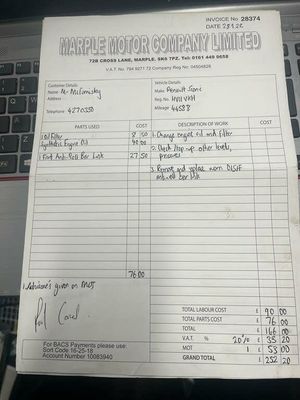 INVOICE No 28374
DATE
MARPLE MOTOR COMPANY LIMITED
72B CROSS LANE, MARPLE, SK6 7PZ. Tel: 0161 449 9658
V.A.T. No. 794 9271 72 Company Reg No: 04504828
Customer Details
Vehicle Details
Name Mr
Make Renault
Address
Reg No
Telephone 4270350
Mileage 44588
PARTS USED £ DESCRIPTION OF WORK £
1 Oil Filter 8 50 1. Change engine oil and filter
Synthetic Engine Oil 40 00
2. Check /top-up other levels,
pressures
1 Front Anti-Roll Bar Link 27 50
3. Remove and replace worn
Bar link
76 00
given on
TOTAL LABOUR COST £ 90 00
TOTAL PARTS COST £ 76 00
TOTAL £ 166 00
V.A.T. % 20% £ 35 20
MOT 1 £ 53 00
GRAND TOTAL £ 252 20
For BACS Payments please use:
Sort Code 16-25-18
Account Number 10083940